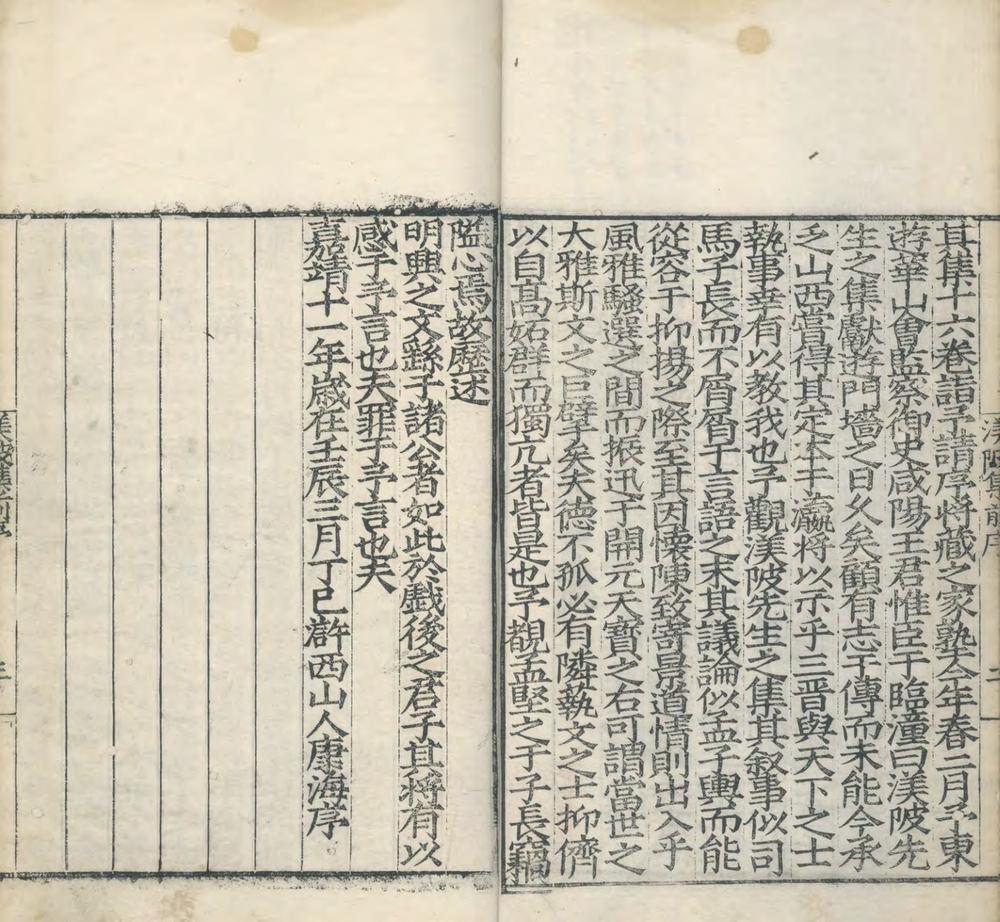 其集十六卷詣予請序將藏之家塾今年春二月予東
遊華山會監察御史咸陽王君惟臣于臨潼曰渼陂先
生之集獻遊門墻之日久矣顧有志于傳而未能今承
乏山西嘗得其定本于瀛將以示乎三晉與天下之士
執事幸有以教我也予觀渼陂先生之集其叙事似司
馬子長而不屑屑于言語之末其議論似孟子輿而能
從容于抑揚之際至其因懷陳致寄景道情則出入乎
風雅騷選之間而振迅于開元天寶之右可謂當世之
大雅斯文之巨擘矣夫德不孤必有隣執文之士抑儕
以自高妬群而獨亢者皆是也予覩孟堅之于子長竊
隘心焉故歷述
明興之文繇子諸公者如此於戲後之君子其將有以
感于予言也夫罪于予言也夫
嘉靖十一年歲在壬辰三月丁巳滸西山人康海序
渼陂集前序
二
三